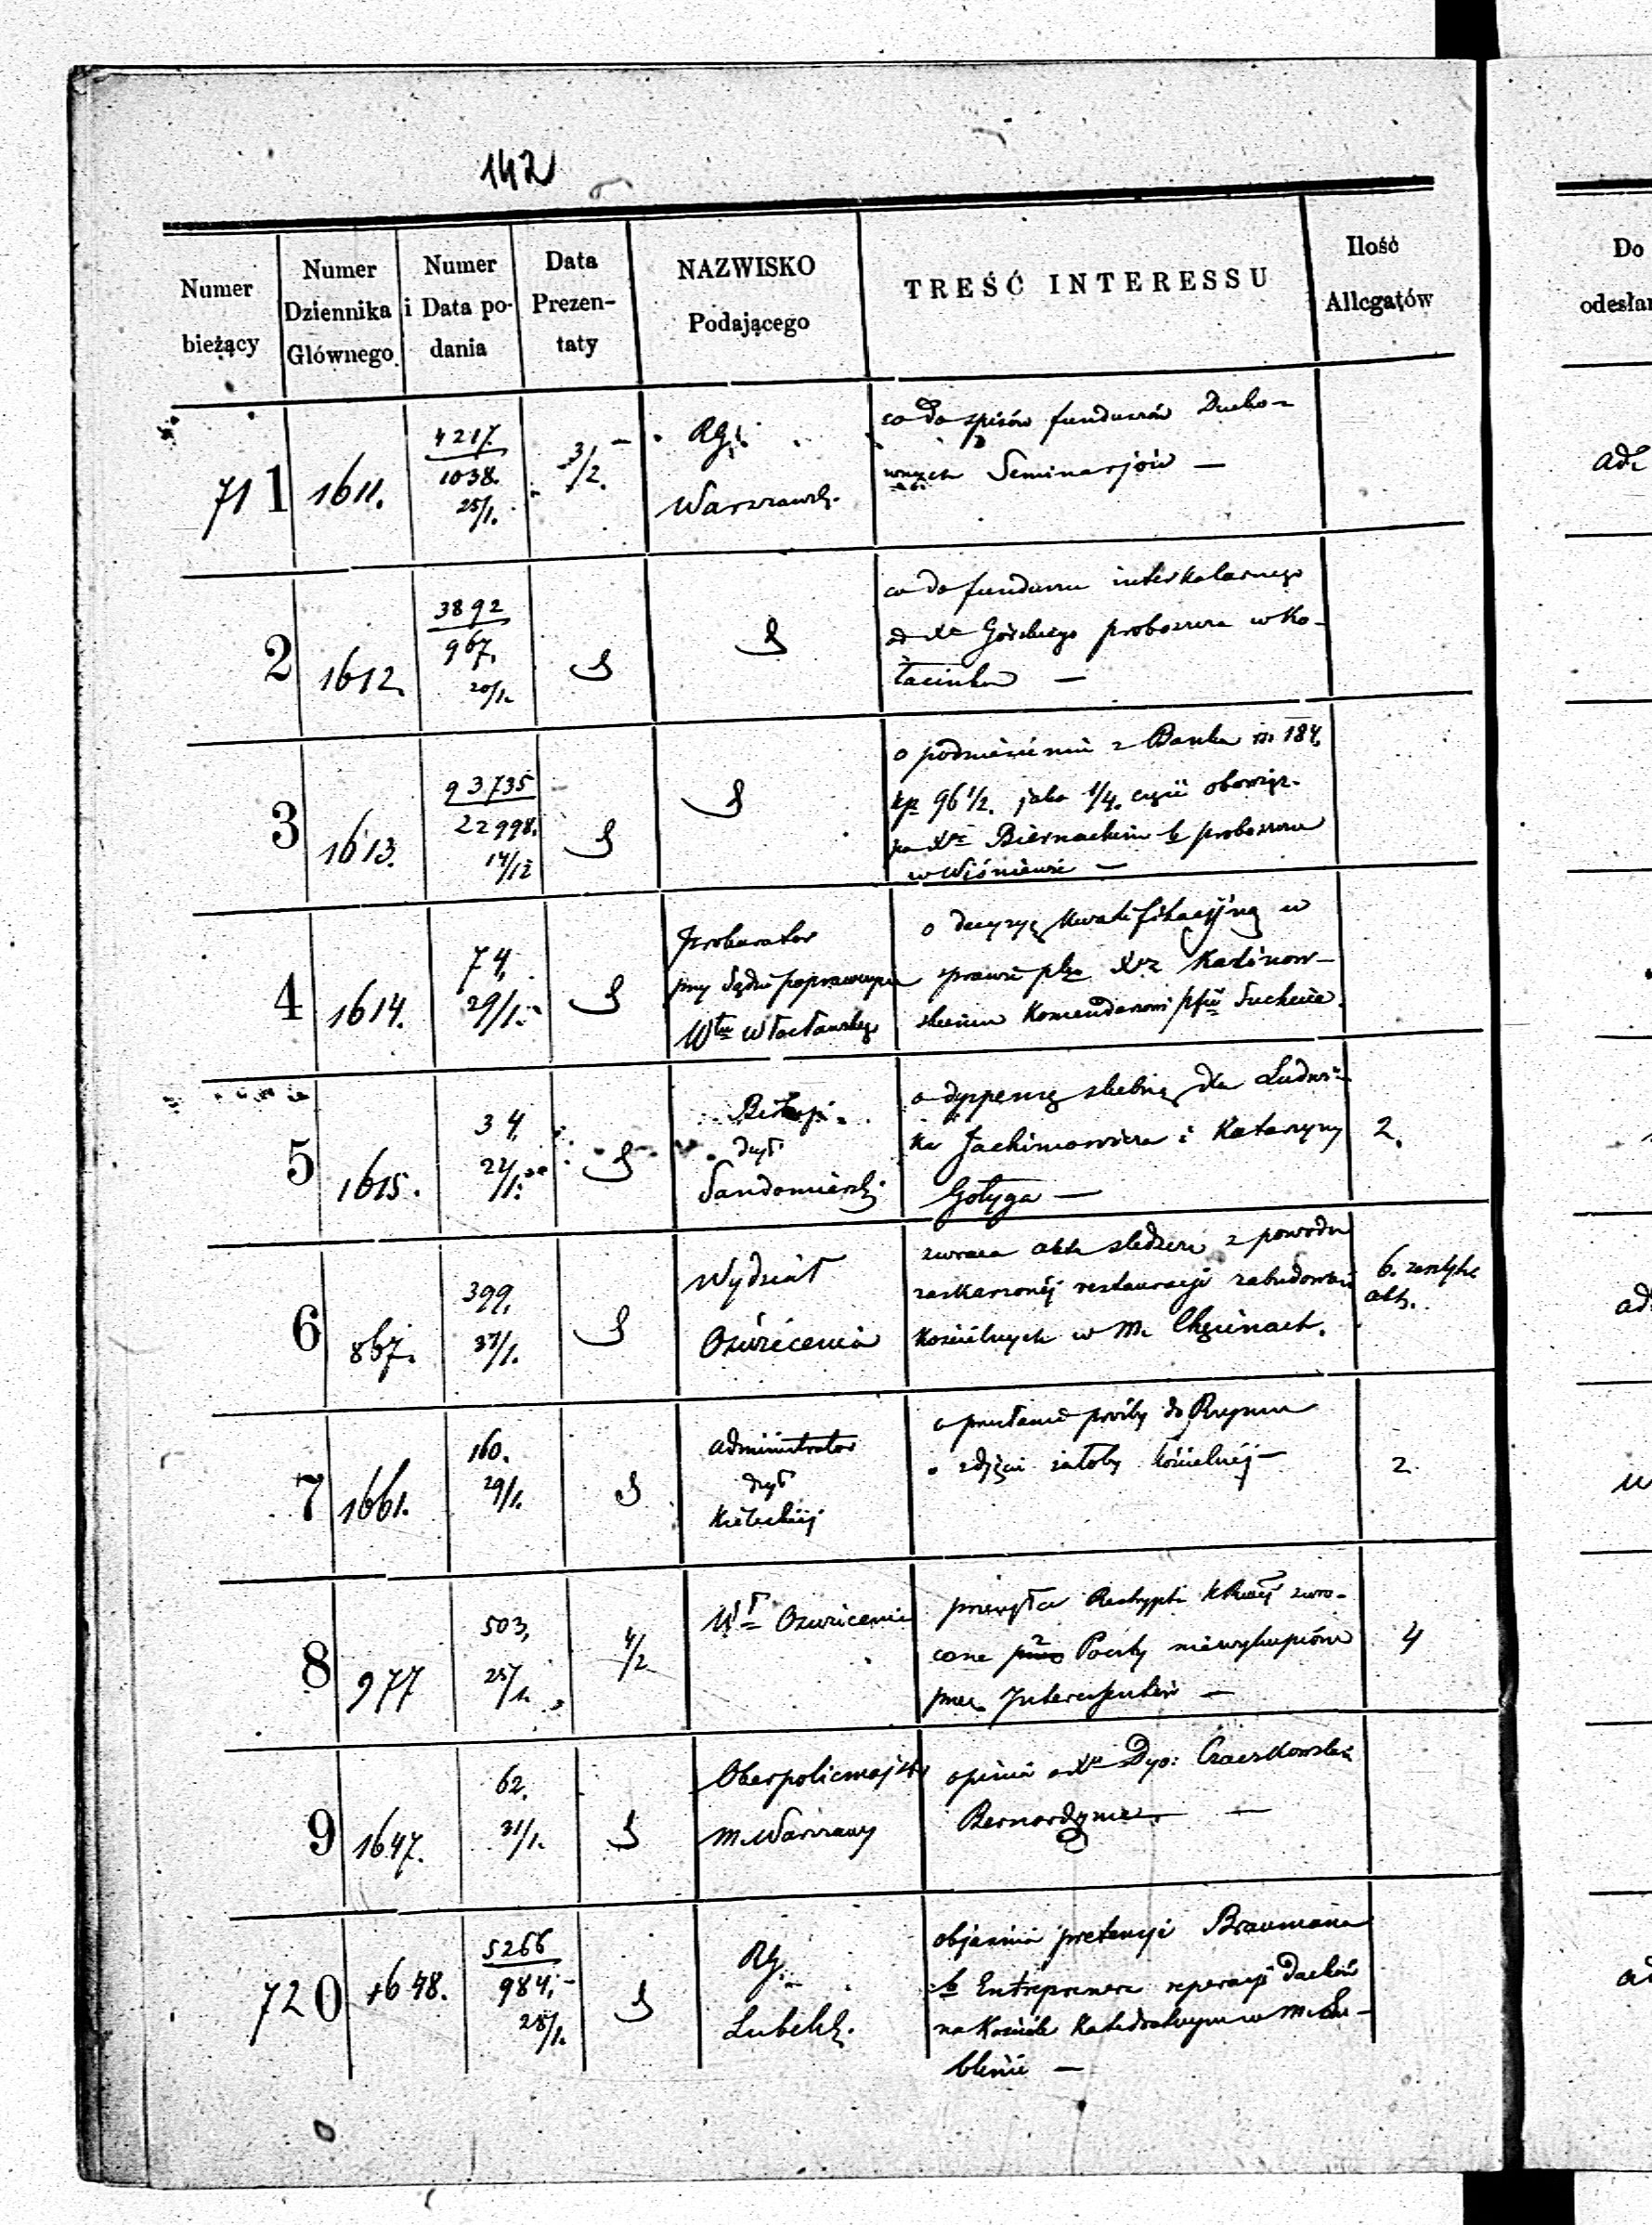 142
Numer bieżący
Numer Dziennika Głównego
Numer i Data podania
Data Prezentaty
NAZWISKO Podającego
TREŚĆ INTERESSU
Ilość Allegatów
Do
odesła
711
1611.
4217.
1038.
25/1.
3/2.
RG.
Warszawsk.
co do spisów funduszów Ducho-
wnych Seminarjów —
2
1612.
3892
967.
20/1.
co do funduszu interkalarnego
od Xa Górskiego proboszcza w Ko-
łacinku —
3
1613.
93735
22998.
14/12
o podniesienie z Banku rs 184
kp 96 1/2. jako 1/4. część obowiąz.
Biernackim b. proboszcza
w Wiśniewie —
4
1614.
74.
29/1.
Prokurator
przy Sądzie poprawczym
Włocławskiego
o decyzyę kwalifikacyjną w
sprawie Kalinow-
skiemu Komendarzowi Suchcice.
5
1615.
34.
22/1.
Biskup
dyec
Sandomierski
o dyspensę ślubną dla Ludwi-
ka Jachimowicza i Katarzyny
Gołyga —
2.
6
867.
399.
31/1.
Wydział
Oświecenia
zwraca akta śledzcze z powodu
zaskarżonéj restauracji zabudowań
Kościelnych w m. Chęcinach.
6. zeszytów
akt.
7
1661.
160.
29/1.
administrator
dyec
Kieleckiéj
o przesłanie prośby do Rzymu
o zdjęcie żałoby kościelnéj —
2
8
977
503.
25/1.
4/2
Wł Oświecenia
przesyła Reskrypta zwró-
cone przez Poczty niewykupione
przez Interesentów —
4
9
1647.
62.
31/1.
Oberpolicmajster
m. Warszawy
opinia o Xu Dyo: Czaczkowskim
Bernardynie. —
720
1648.
5266
984.
28/1.
RG.
Lubelsk.
objaśnia pretensje Braumana
b. Entreprenera reperacji dachów
na Kościele Katedralnym w m. Lu-
blinie —